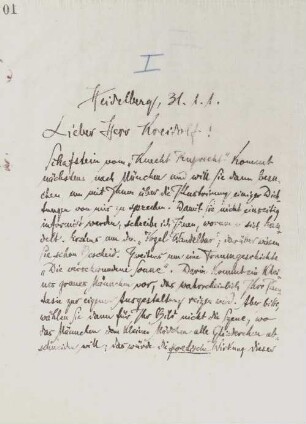 01
I
Heidelberg, 31. 1. 1.
Lieber Herr Kreidolf!
Schafstein vom „Knecht Ruprecht“ kommt
nächstens nach München und will Sie dann besu-
chen um mit Ihnen über die Illustrirung einiger Dich-
tungen von mir zu sprechen. Damit Sie nicht einseitig
informirt werden, schreibe ich Ihnen, worum sich's han-
delt. Erstens um den „Vogel Wandelbar“; darüber wissen
Sie schon Bescheid. Zweitens um eine Traumgeschichte
„Die verschwundene Sonne“. Darin kommt ein klei-
nes graues Männchen vor, das wahrscheinlich Ihre Phan-
tasie zur eignen Ausgestaltung reizen wird. Aber bitte,
wählen Sie dann für Ihr Bild nicht die Szene, wo
das Männchen dem kleinen Mädchen alle Gliederchen ab-
schneiden will; das würde die poetische Wirkung dieser